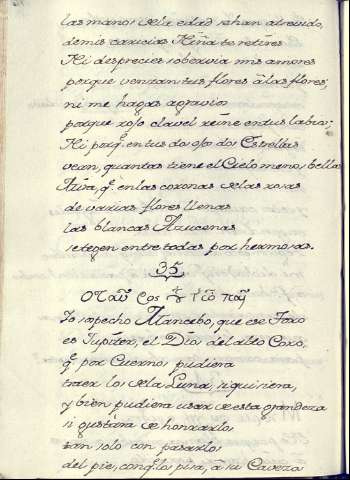 las manos de la edad se han atrevido,
de mis caricias Niña te retires
Ni desprecies sobervia mis amores
porque venzan tus flores â las flores,
ni me hagas agravio
porque rojo clavel reine en tus labios;
Ni porq̃. en tus dos ojos dos Estrellas
vean, quantas tiene el Cielo menos bellas
Mira, q̃. en las coronas de las rosas
de varias flores llenas
las blancas Azucenas
se tegen entre todas por hermosas.
35
Yo sospecho Mancebo, que ese Toro
es Jupiter, el Dios del alto Coro,
q̃. por Cuernos pudiera
traer los de la Luna, si quisiera,
y bien pudiera usar de esta grandeza
si gustára de honrarlo
tan solo con pasarlos
del pie, conq̃. los pisa, a su Caveza